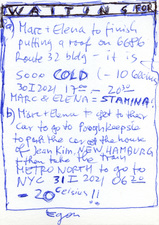 WAITING FOR
(a) Marc + Elena to finish
putting a roof on 6686
Route 32 bldg - it is
sooo COLD (-10 Celsius)
30 I 2021 17°° - 20°°
MARC & ELENA = STAMINA!
(b) Marc + Elena to get to their
car to go to Poughkeepsie
to park the car at the house
of Jean Kim, NEW HAMBURG
+ then take the train
METRO NORTH to go to
NYC 31 I 2021 06²⁰
- 20 Celsius!!
Egon